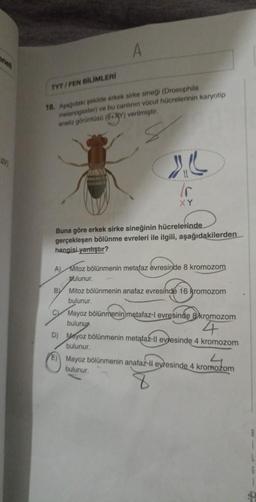 A
TYT / FEN BİLİMLERİ
18. Aşağıdaki şekilde erkek sirke sineği (Drosophila
melanogaster) ve bu canlının vücut hücrelerinin karyotip
analiz görüntüsü (6+XY) verilmiştir.
X Y
Buna göre erkek sirke sineğinin hücrelerinde
gerçekleşen bölünme evreleri ile ilgili, aşağıdakilerden
hangisi yanlıştır?
A) Mitoz bölünmenin metafaz evresinde 8 kromozom
bulunur.
B) Mitoz bölünmenin anafaz evresinde 16 kromozom
bulunur.
C) Mayoz bölünmenin metafaz-I evresinde 8 kromozom
bulunur.
4
D) Mayoz bölünmenin metafaz-II evresinde 4 kromozom
bulunur.
4
E) Mayoz bölünmenin anafaz-II evresinde 4 kromozom
bulunur.
8